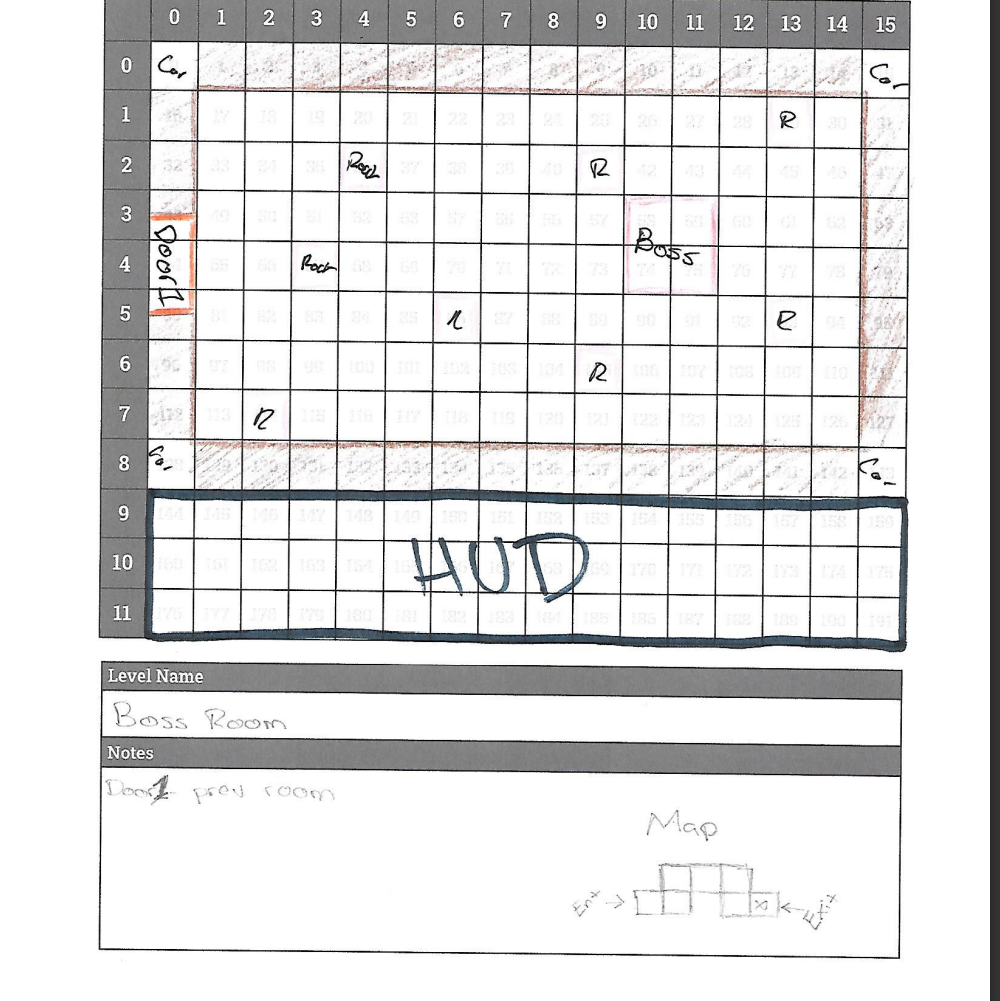 0 1 2 3 4 5 6 7 8 9 10 11 12 13 14 15
0 Cor 1 2 3 4 5 6 7 8 9 10 11 12 13 14 Cor
1 16 17 18 19 20 21 22 23 24 25 26 27 28 R 30 31
2 32 33 34 35 Rock 37 38 39 40 R 42 43 44 45 46 47
3 48 49 50 51 52 53 57 55 56 57 58 59 60 61 62 63
Door1 Boss
4 65 66 Rock 68 69 70 71 72 73 74 75 76 77 78 79
5 81 82 83 84 85 R 87 88 89 90 91 92 R 94 95
6 96 97 98 99 100 101 102 103 104 R 106 107 108 109 110
7 112 113 R 115 116 117 118 119 120 121 122 123 124 125 126 127
8 Cor 129 130 131 132 133 134 135 136 137 138 139 140 141 142 Cor
9 144 145 146 147 148 149 150 151 152 153 154 155 156 157 158 159
10 160 161 162 163 164 168 169 170 171 172 173 174 175
HUD
11 176 177 178 179 180 181 182 183 184 185 186 187 188 189 190 191
Level Name
Boss Room
Notes
Door1 prev room
Map
Ent
x
Exit